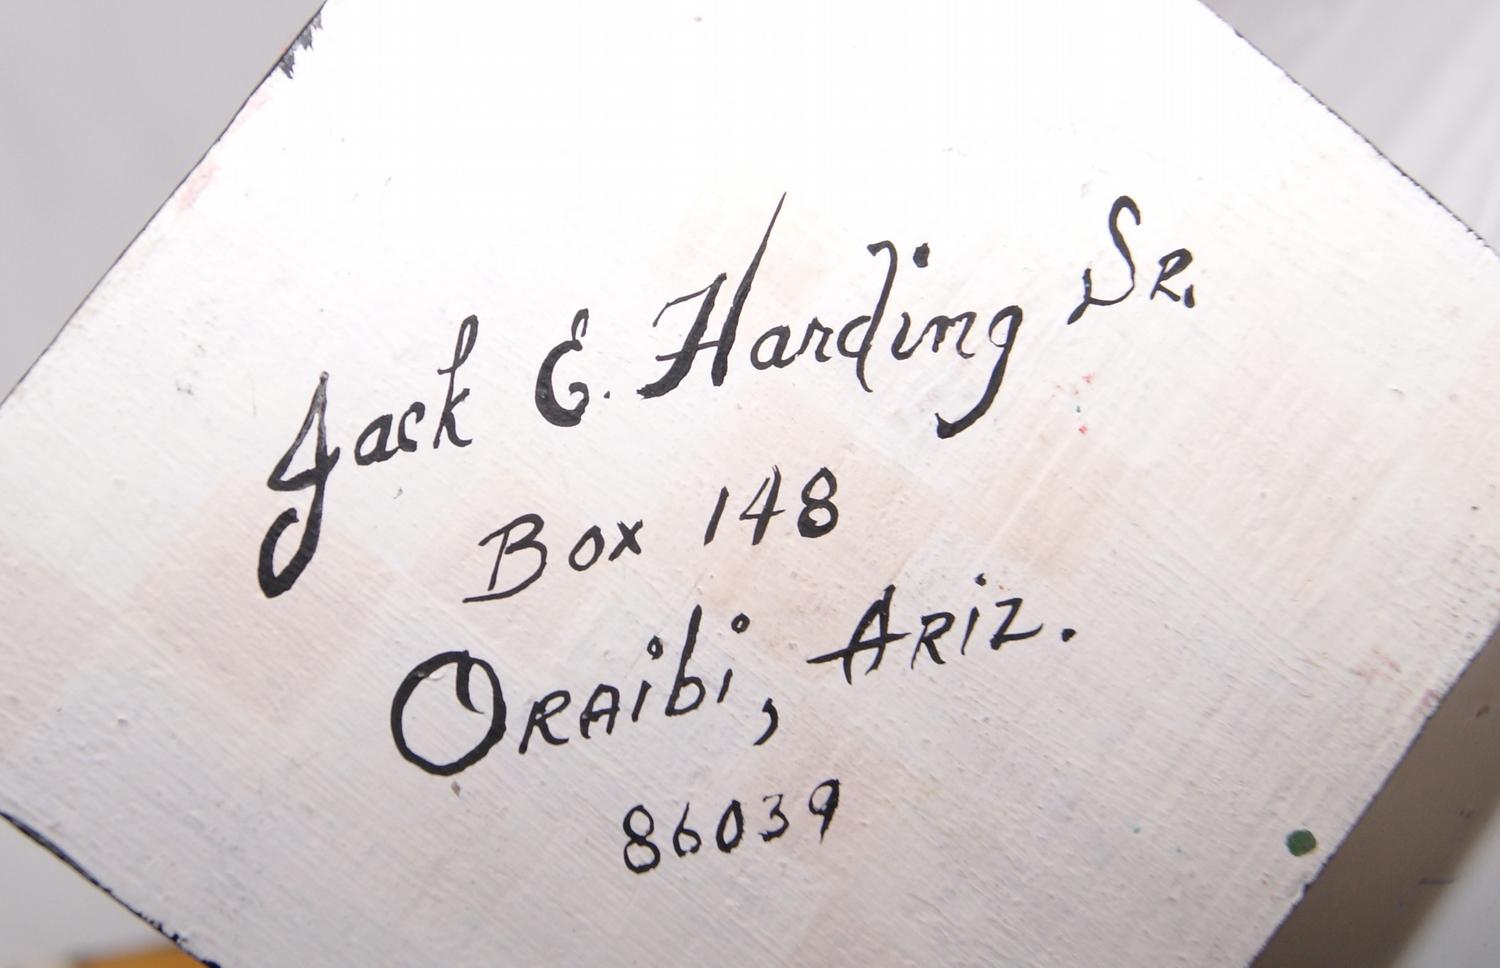 Jack E. Harding Sr.
Box 148
Oraibi, Ariz.
86039